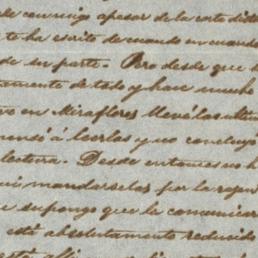 de conmigo apesar de la corta dista
te ha escrito de cuando en cuando
de su parte. Pero desde que
tamente de todo y han mucho
vo en Miraflores llevélas
á leerlas y no concluyó
lectura. Desde entonces no h
mandarselas por la
supongo que le comunicar
está absolutamente reducido